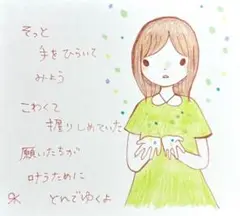 そっと
手をひらいて
みよう
こわくて
握りしめていた
願いたちが
叶うために
とんでゆくよ